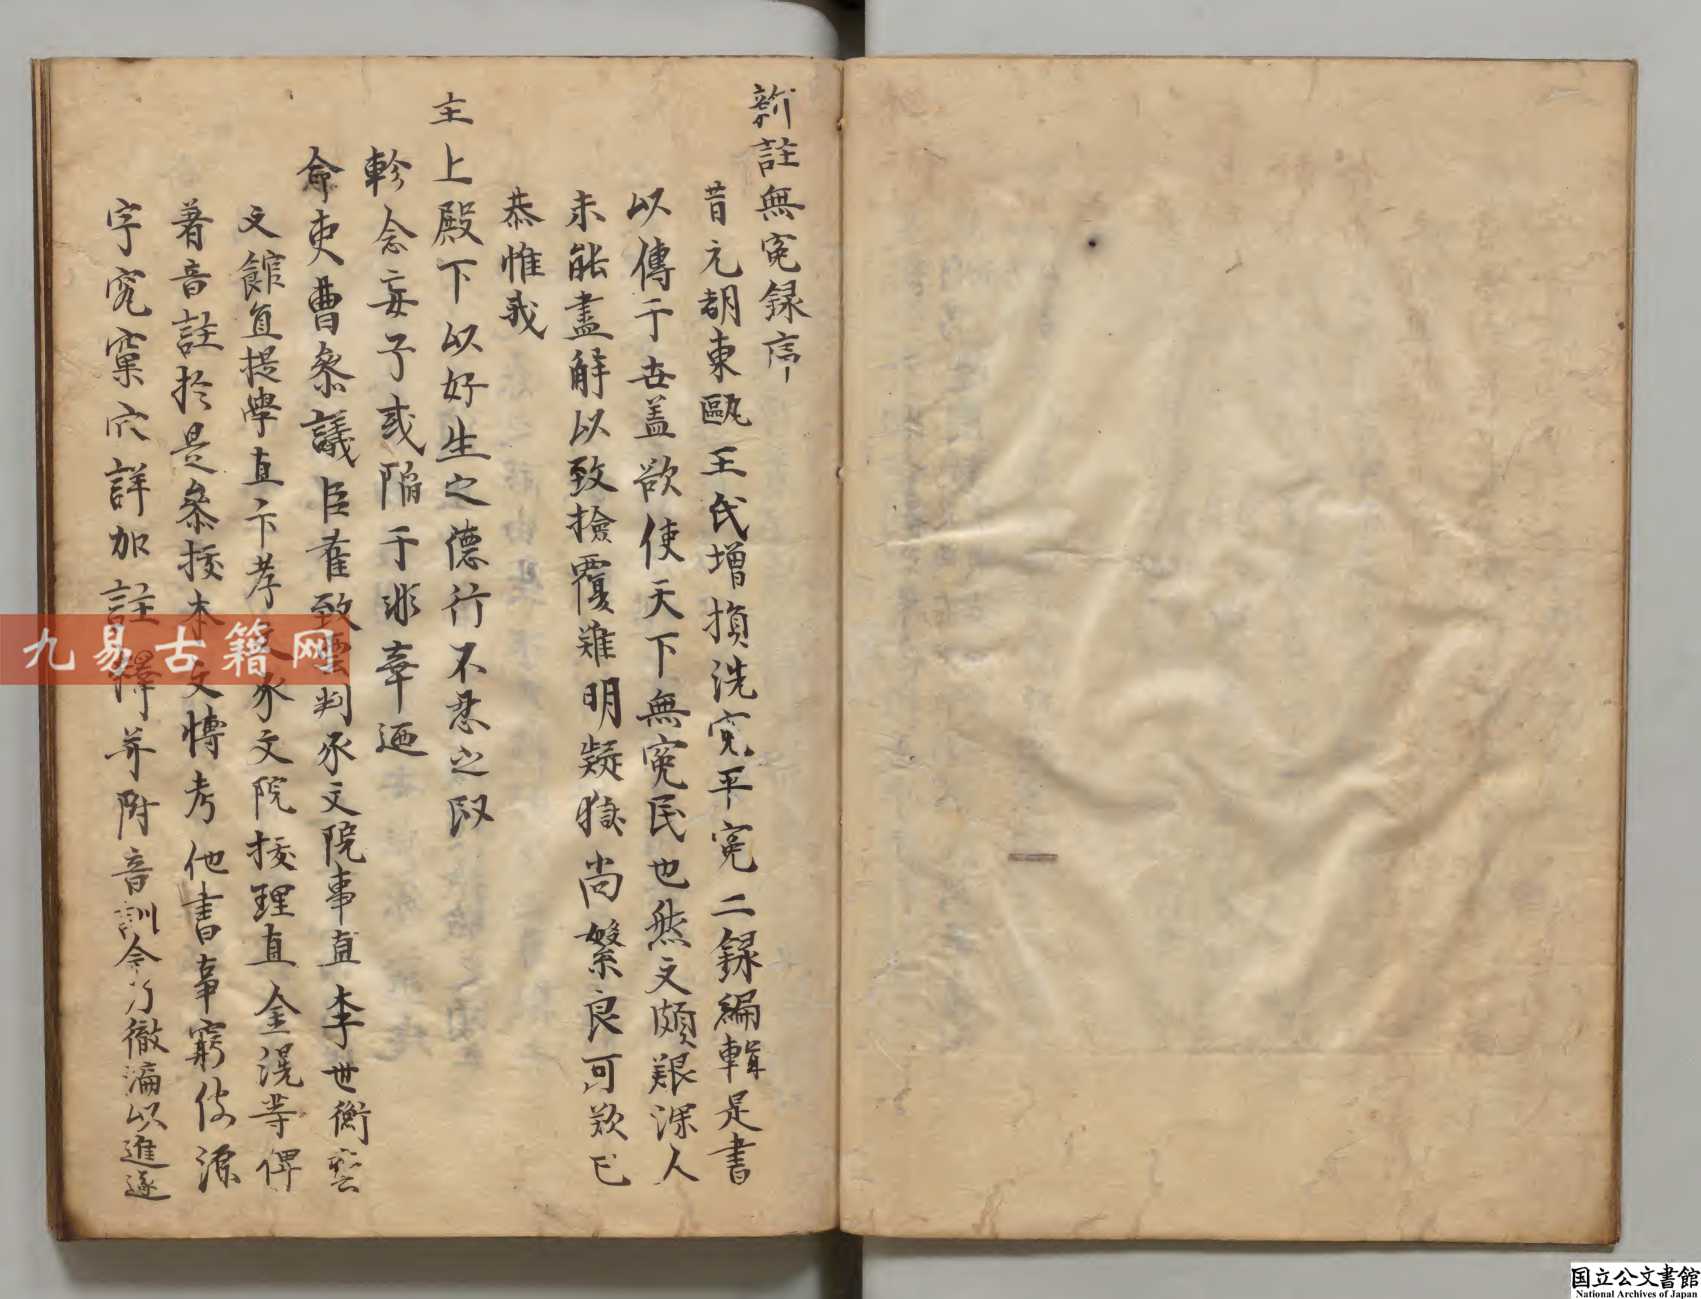 新註無冤録序
昔元朝東甌王氏增損洗冤平冤二録編輯是書
以傳于世盖欲使天下無冤民也然文頗艱深人
未能盡觧以致撿覆難明疑獄尚繁良可欺已
恭惟我
主上殿下以好生之德行不忍之政
軫念辜子或陥于非辜迺
命吏曹叅議臣崔致雲判承文院事直李世衡藝
文館直提學直卞孝文承文院挍理直金滉等俾
著音註於是叅挍本文愽考他書事窮使源
字究窠穴詳加註釋并附音訓令行徹濔以進遂
九易古籍网
国立公文書館
National Archives of Japan